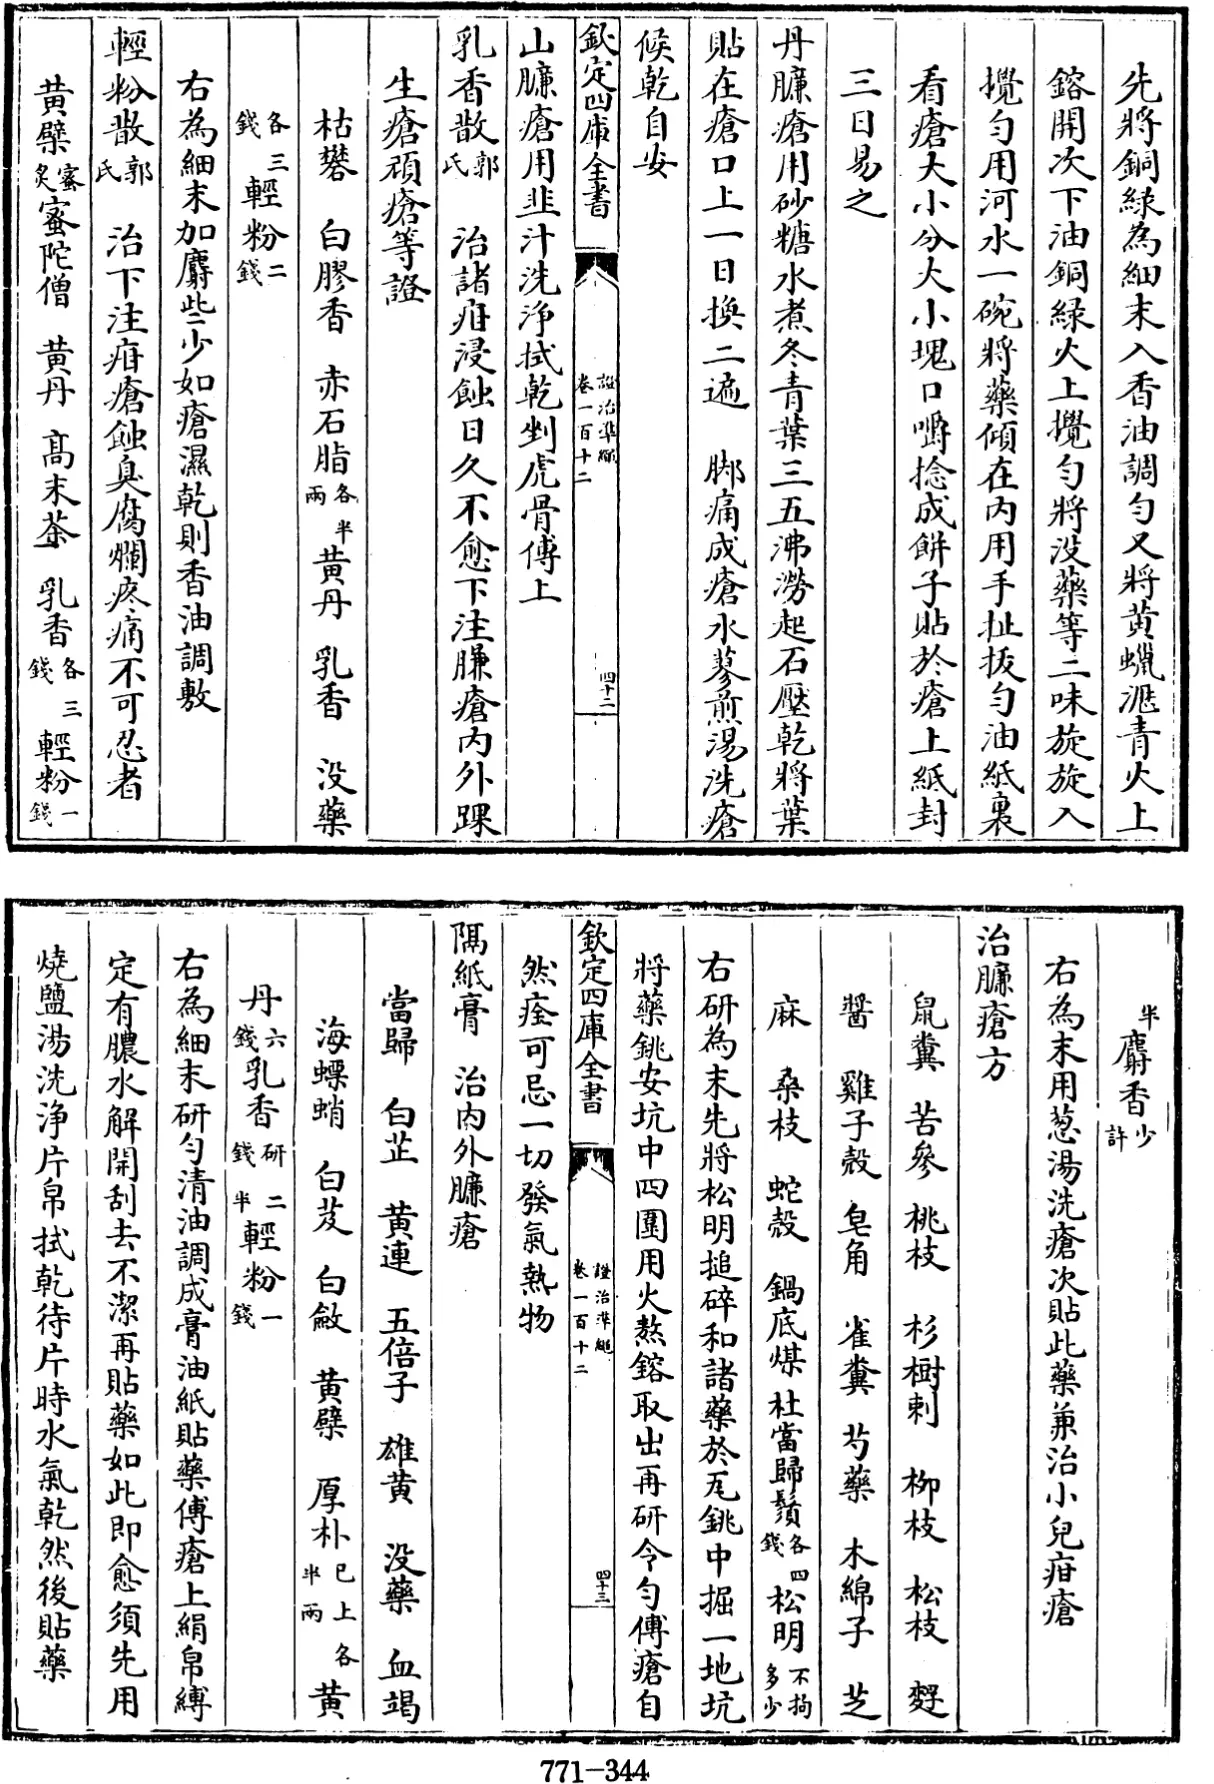 先將銅緑為細末入香油調勻又將黄蠟瀝青火上
鎔開次下油銅緑火上攪勻將没藥等二味旋旋入
攪勻用河水一碗將藥傾在内用手扯拔勻油紙裏
看瘡大小分大小塊口嚼捻成餅子貼於瘡上紙封
三日易之
丹臁瘡用砂糖水煮冬青葉三五沸澇起石壓乾將葉
貼在瘡口上一日換二遍　脚痛成瘡水蓼煎湯洗瘡
候乾自安
欽定四庫全書　證治凖繩　卷一百十二　四十二
山臁瘡用韭汁洗浄拭乾剉虎骨傅上
乳香散郭氏　治諸疳浸蝕日久不愈下注臁瘡内外踝
生瘡頑瘡等證
枯礬　白膠香　赤石脂各半兩　黄丹　乳香　没藥
各三錢　輕粉二錢
右為細末加麝些少如瘡濕乾則香油調敷
輕粉散郭氏　治下注疳瘡蝕臭腐爛疼痛不可忍者
黄蘗蜜炙　蜜陀僧　黄丹　髙末茶　乳香各三錢　輕粉一錢
半　麝香少許
右為末用葱湯洗瘡次貼此藥兼治小兒疳瘡
治臁瘡方
鼠糞　苦參　桃枝　杉樹刺　柳枝　松枝　麫
醬　雞子殻　皂角　雀糞　芍藥　木綿子　芝
麻　桑枝　蛇殻　鍋底煤　杜當歸鬚各四錢　松明不拘多少
右研為末先將松明搥碎和諸藥於瓦銚中掘一地坑
將藥銚安坑中四圍用火熬鎔取出再研令勻傅瘡自
欽定四庫全書　證治凖繩　卷一百十二　四十三
然痊可忌一切發氣熱物
隔紙膏　治内外臁瘡
當歸　白芷　黄連　五倍子　雄黄　没藥　血竭
海螵蛸　白芨　白斂　黄蘗　厚朴已上各半兩　黄
丹六錢　乳香研二錢半　輕粉一錢
右為細末研勻清油調成膏油紙貼藥傅瘡上絹帛縛
定有膿水解開刮去不潔再貼藥如此即愈須先用
燒鹽湯洗浄片帛拭乾待片時水氣乾然後貼藥
771-344